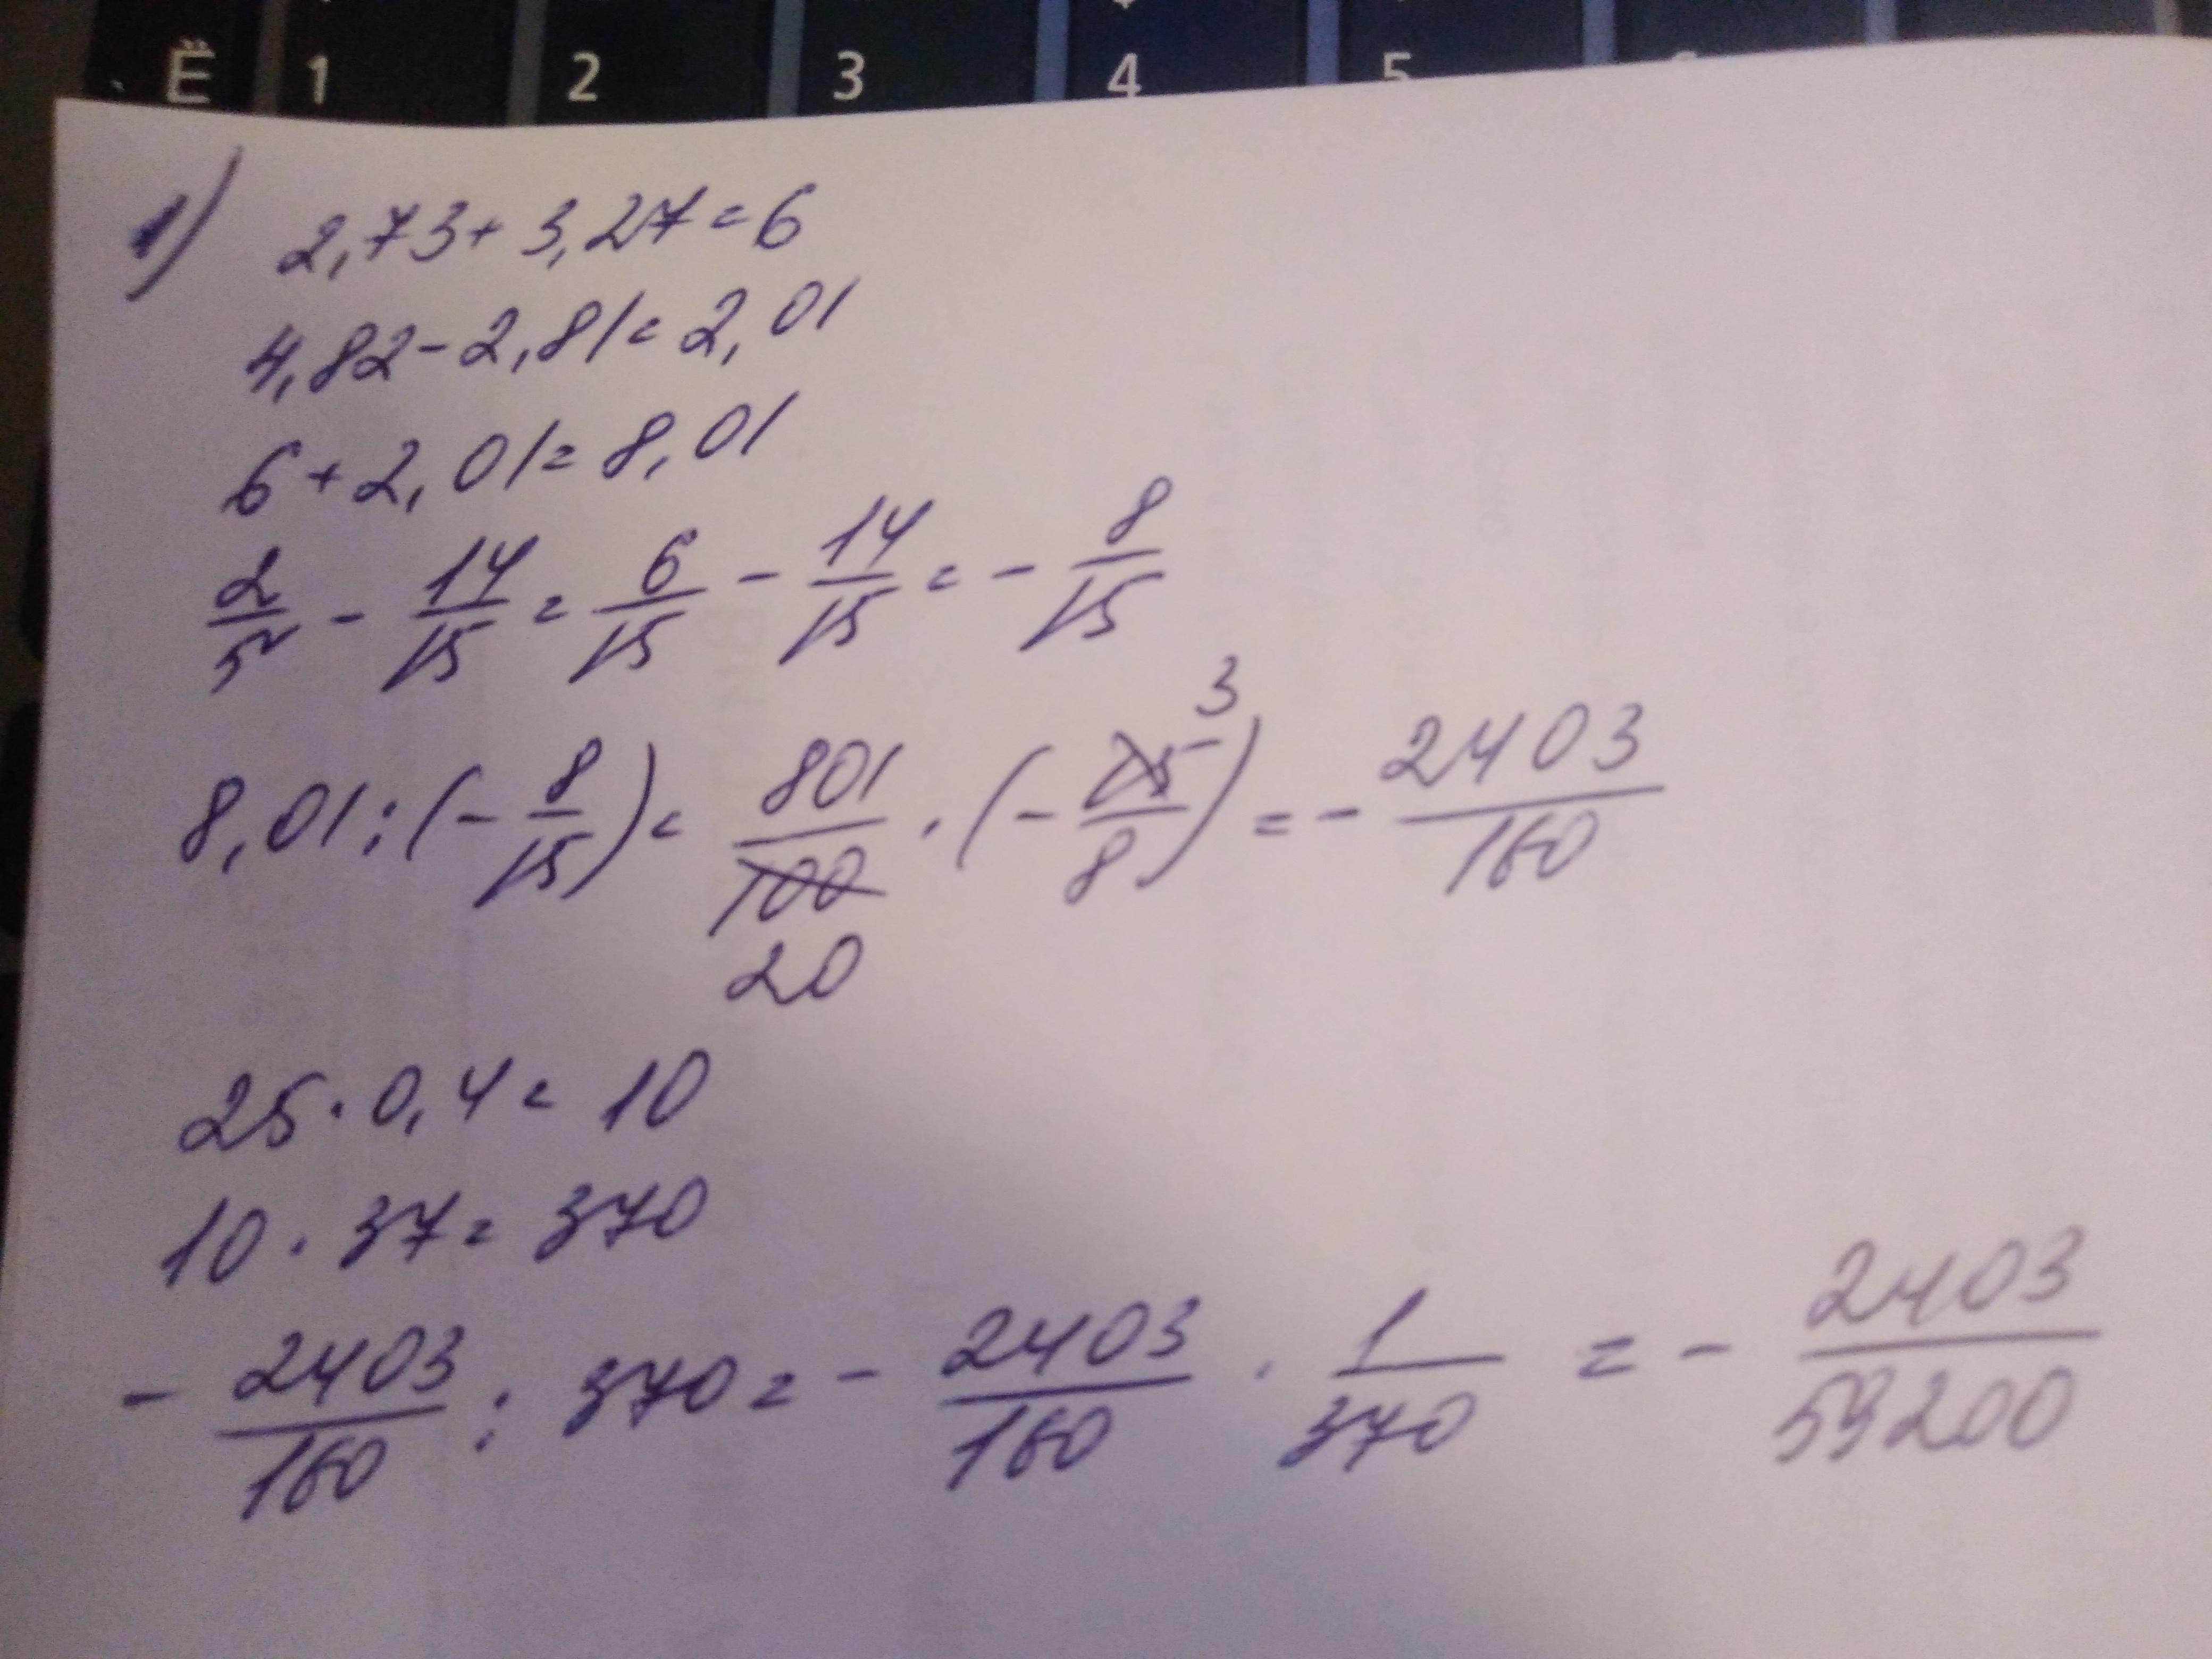 Ё 1 2 3 4 5
1) 2,73+3,27=6
4,82-2,81=2,01
6+2,01=8,01
2/5 - 14/15 = 6/15 - 14/15 = - 8/15
8,01:(- 8/15) = 801/100 · (- 15/8) = - 2403/160
3
20
25·0,4=10
10·37=370
- 2403/160 : 370 = - 2403/160 · 1/370 = - 2403/59200